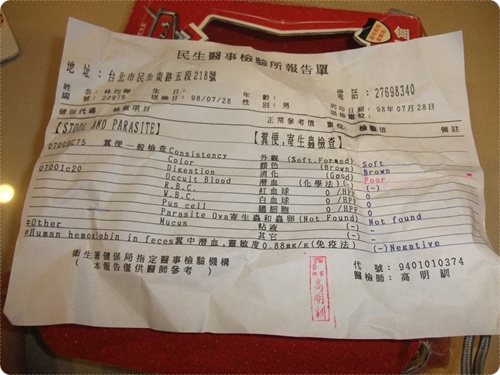 民生醫事檢驗所報告單
地 址 : 台北市民生東路五段218號 電話: 27698340
姓名: 林均 生日: 年齡: 列印日期:
編號: 20975 送檢日: 98/07/28 性別: 男 98年07月28日
健保代碼 檢驗項目 正常參考值 單位 檢驗值 備註
【STOOL AND PARASITE】 【糞便,寄生蟲檢查】
07009C75 糞便一般檢查Consistency 外觀 (Soft,Formed) Soft
Color 顏色 (Brown) Brown
Digestion 消化 (Good) Poor
07001c20 Occult Blood 潛血 (化學法)(-) (-)
R.B.C. 紅血球 0 /HPF 0
W.B.C. 白血球 0 /HPF 0
Pus cell 膿細胞 0 /HPF 0
Parasite Ova寄生蟲和蟲卵(Not Found) Not found
Mucus 粘液 (-) (-)
#Other 其它 (-)
#Human hemoglobin in feces糞中潛血,靈敏度0.88mg/g(免疫法) (-)Negative
衛生署健保局指定醫事檢驗機構 代 號: 9401010374
( 本報告僅供醫師參考 ) 醫檢師: 高 明 釧
高明釧